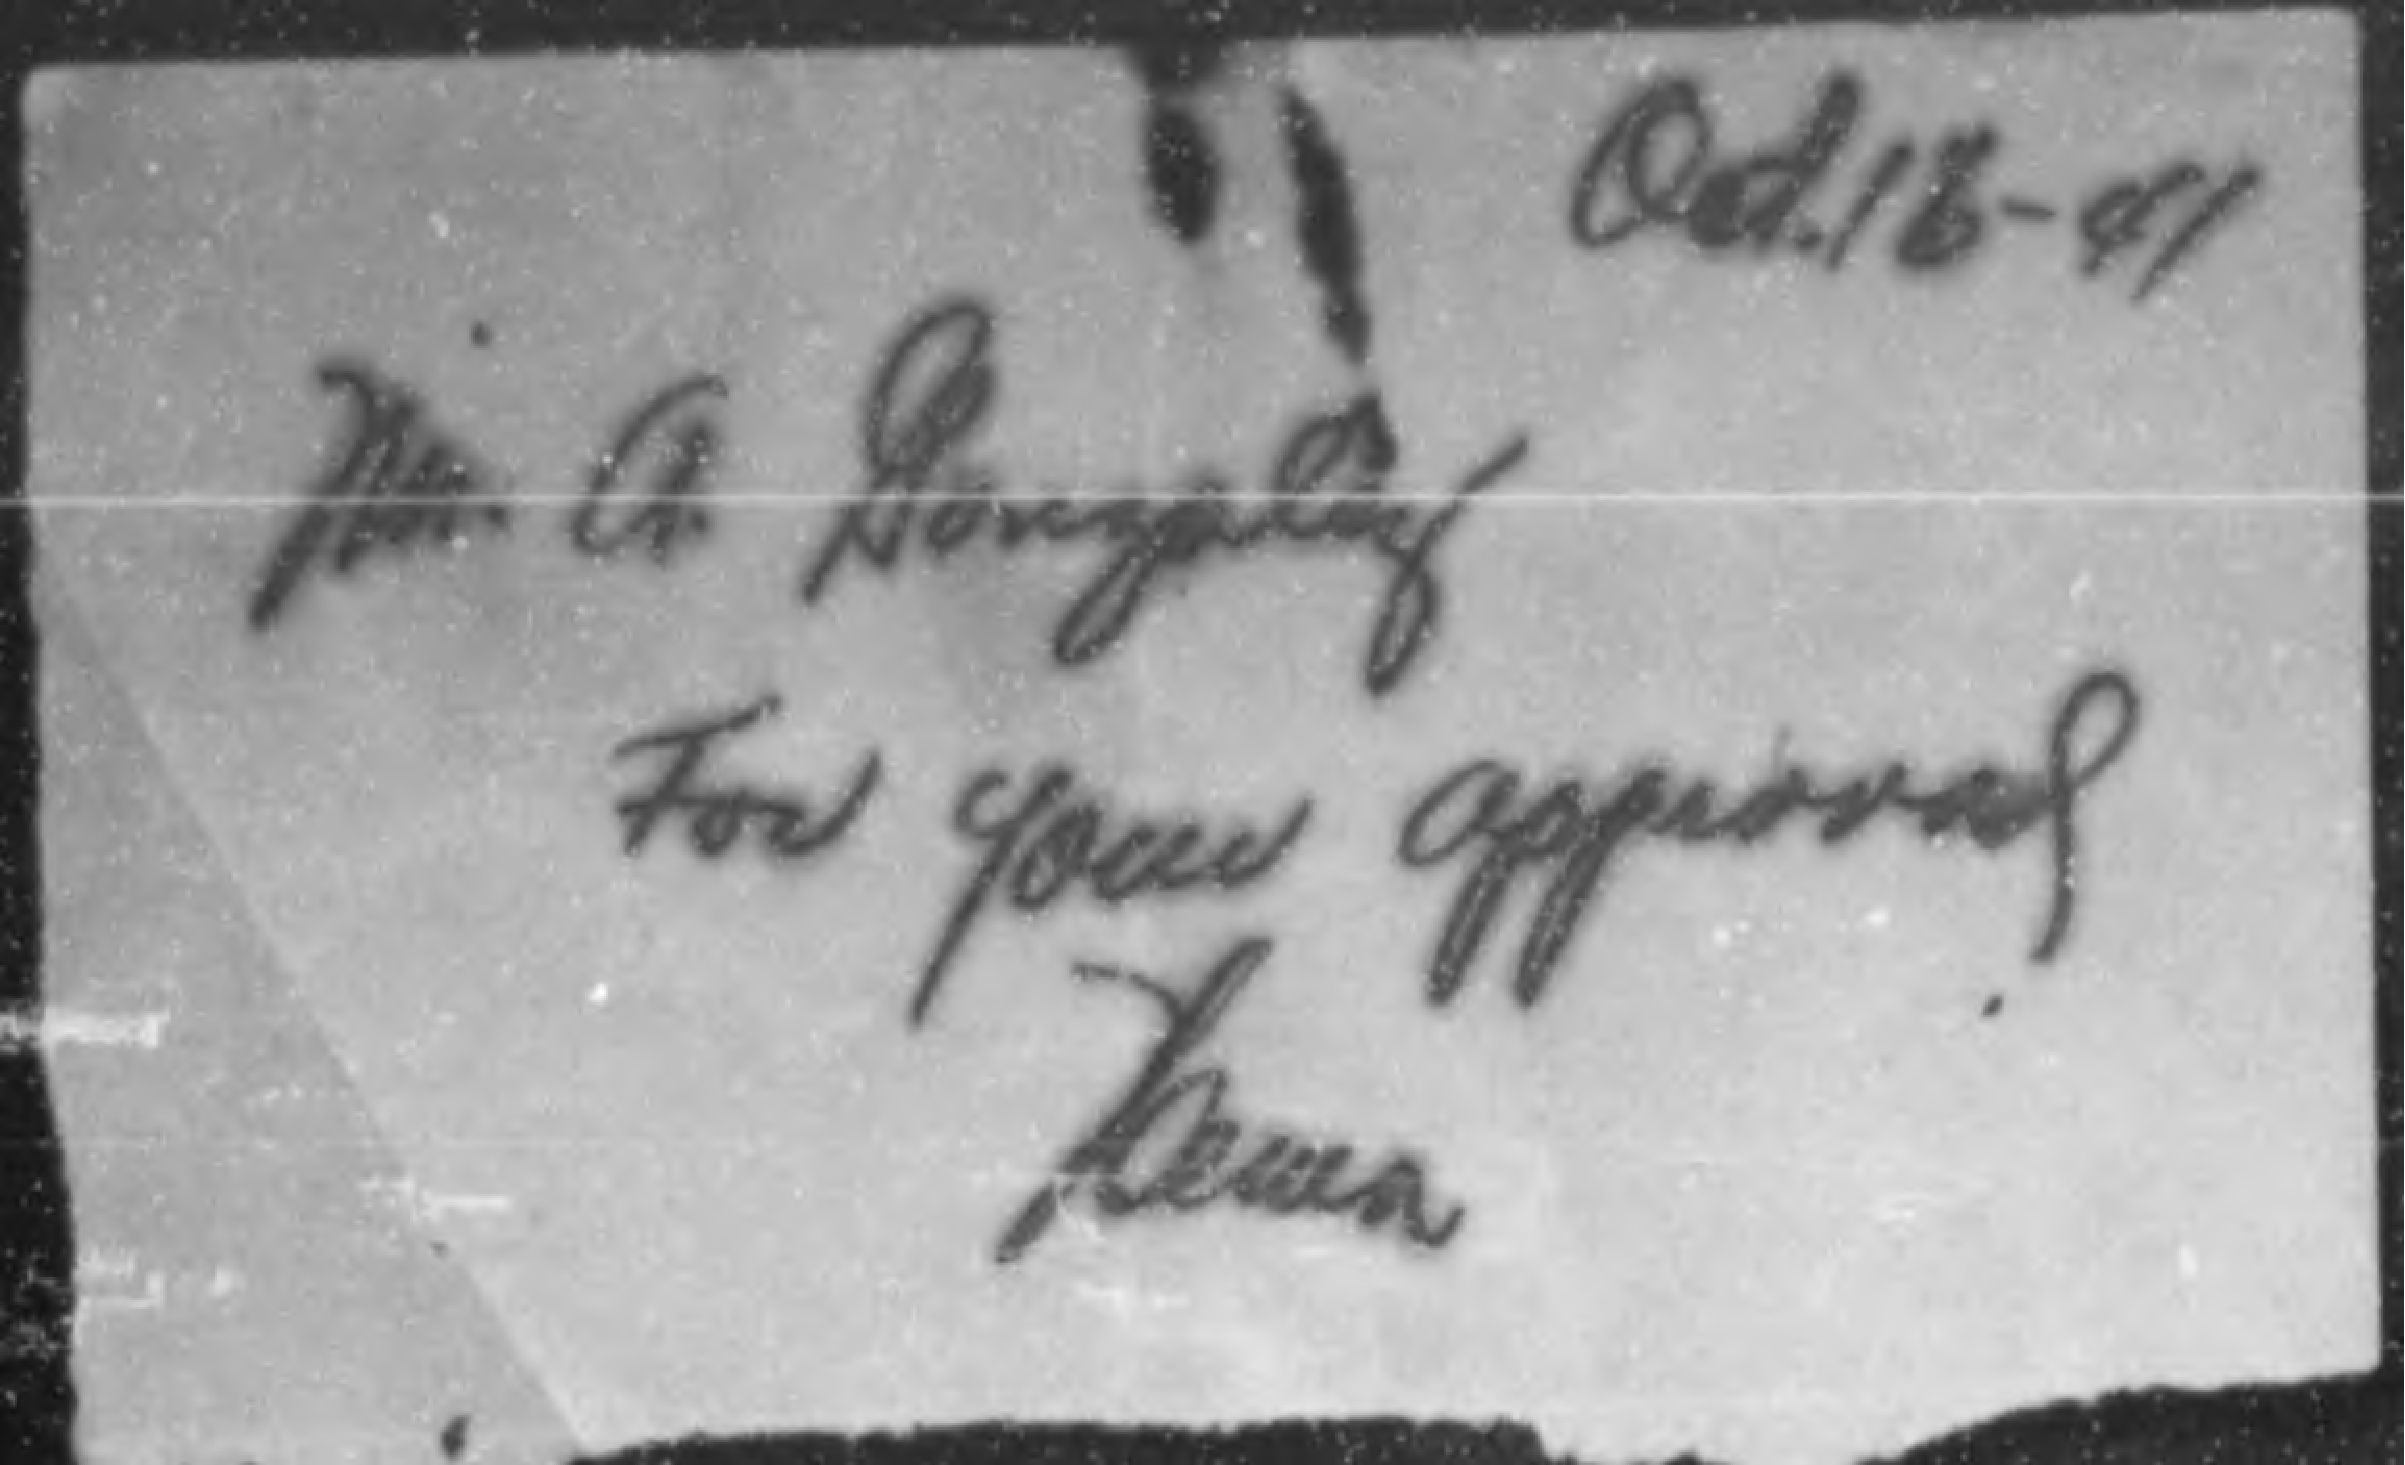 Oct. 18-41
Mr. A. Gonzalez
For your approval